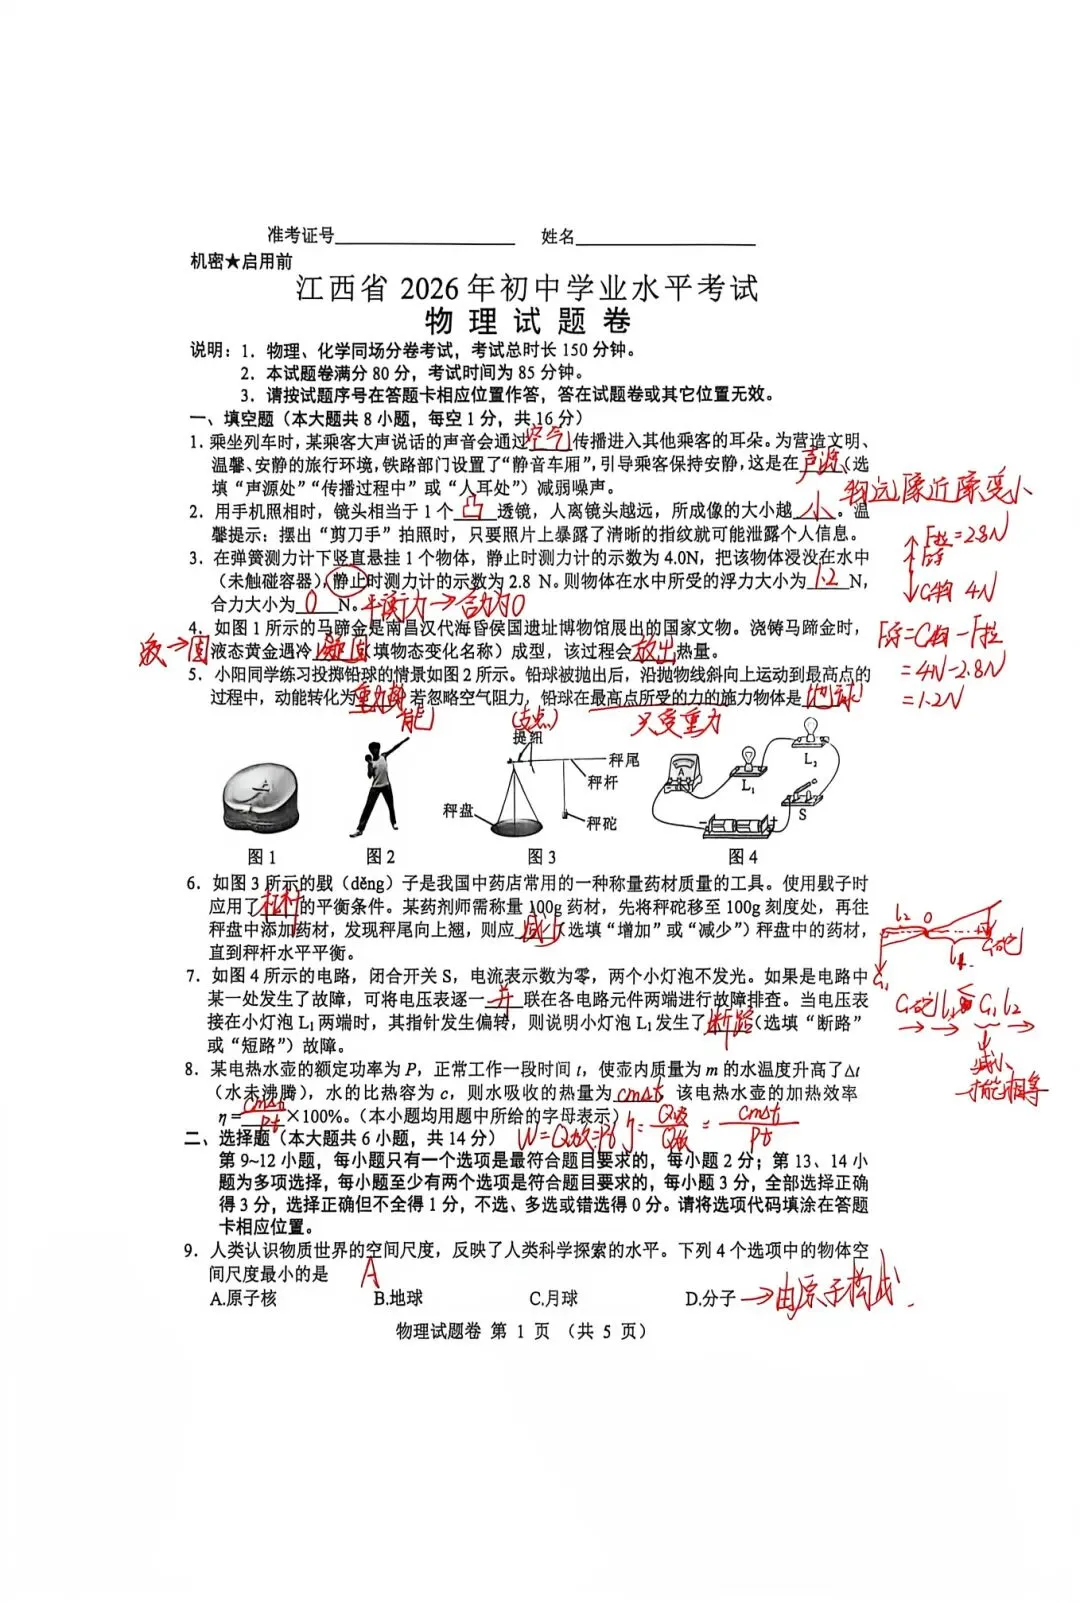 准考证号 姓名
机密★启用前
江西省 2026 年初中学业水平考试
物理试题卷
说明：1．物理、化学同场分卷考试，考试总时长 150 分钟。
2．本试题卷满分 80 分，考试时间为 85 分钟。
3．请按试题序号在答题卡相应位置作答，答在试题卷或其它位置无效。
一、填空题（本大题共 8 小题，每空 1 分，共 16 分）
1．乘坐列车时，某乘客大声说话的声音会通过空气传播进入其他乘客的耳朵。为营造文明、
温馨、安静的旅行环境，铁路部门设置了“静音车厢”，引导乘客保持安静，这是在声源（选
填“声源处”“传播过程中”或“人耳处”）减弱噪声。
物远像近像变小
2．用手机照相时，镜头相当于 1 个凸透镜，人离镜头越远，所成像的大小越小。温
馨提示：摆出“剪刀手”拍照时，只要照片上暴露了清晰的指纹就可能泄露个人信息。
3．在弹簧测力计下竖直悬挂 1 个物体，静止时测力计的示数为 4.0N，把该物体浸没在水中
（未触碰容器），静止时测力计的示数为 2.8 N。则物体在水中所受的浮力大小为1.2N，
合力大小为0N。平衡力→合力为0
F拉=2.8N
F浮
G物 4N
F浮=G物-F拉
=4N-2.8N
=1.2N
4．如图 1 所示的马蹄金是南昌汉代海昏侯国遗址博物馆展出的国家文物。浇铸马蹄金时，
液→固
液态黄金遇冷凝固（填物态变化名称）成型，该过程会放出热量。
5．小阳同学练习投掷铅球的情景如图 2 所示。铅球被抛出后，沿抛物线斜向上运动到最高点的
过程中，动能转化为重力势能 若忽略空气阻力，铅球在最高点所受的力的施力物体是地球
（支点） 只受重力
提纽
秤尾
秤杆
秤盘
秤砣
A
L₁
L₂
S
图 1 图 2 图 3 图 4
6．如图 3 所示的戥（děng）子是我国中药店常用的一种称量药材质量的工具。使用戥子时
应用了杠杆的平衡条件。某药剂师需称量 100g 药材，先将秤砣移至 100g 刻度处，再往
秤盘中添加药材，发现秤尾向上翘，则应减少（选填“增加”或“减少”）秤盘中的药材，
直到秤杆水平平衡。
7．如图 4 所示的电路，闭合开关 S，电流表示数为零，两个小灯泡不发光。如果是电路中
某一处发生了故障，可将电压表逐一并联在各电路元件两端进行故障排查。当电压表
接在小灯泡 L₁ 两端时，其指针发生偏转，则说明小灯泡 L₁ 发生了断路（选填“断路”
或“短路”）故障。
减小
才能相等
8．某电热水壶的额定功率为 P，正常工作一段时间 t，使壶内质量为 m 的水温度升高了Δt
（水未沸腾），水的比热容为 c，则水吸收的热量为cmΔt，该电热水壶的加热效率
η=cmΔt/Pt×100%。（本小题均用题中所给的字母表示）
W=Q放=Pt η=Q吸/Q放=cmΔt/Pt
二、选择题（本大题共 6 小题，共 14 分）
第 9~12 小题，每小题只有一个选项是最符合题目要求的，每小题 2 分；第 13、14 小
题为多项选择，每小题至少有两个选项是符合题目要求的，每小题 3 分，全部选择正确
得 3 分，选择正确但不全得 1 分，不选、多选或错选得 0 分。请将选项代码填涂在答题
卡相应位置。
9．人类认识物质世界的空间尺度，反映了人类科学探索的水平。下列 4 个选项中的物体空
间尺度最小的是 A
A.原子核 B.地球 C.月球 D.分子→由原子构成.
物理试题卷 第 1 页 （共 5 页）